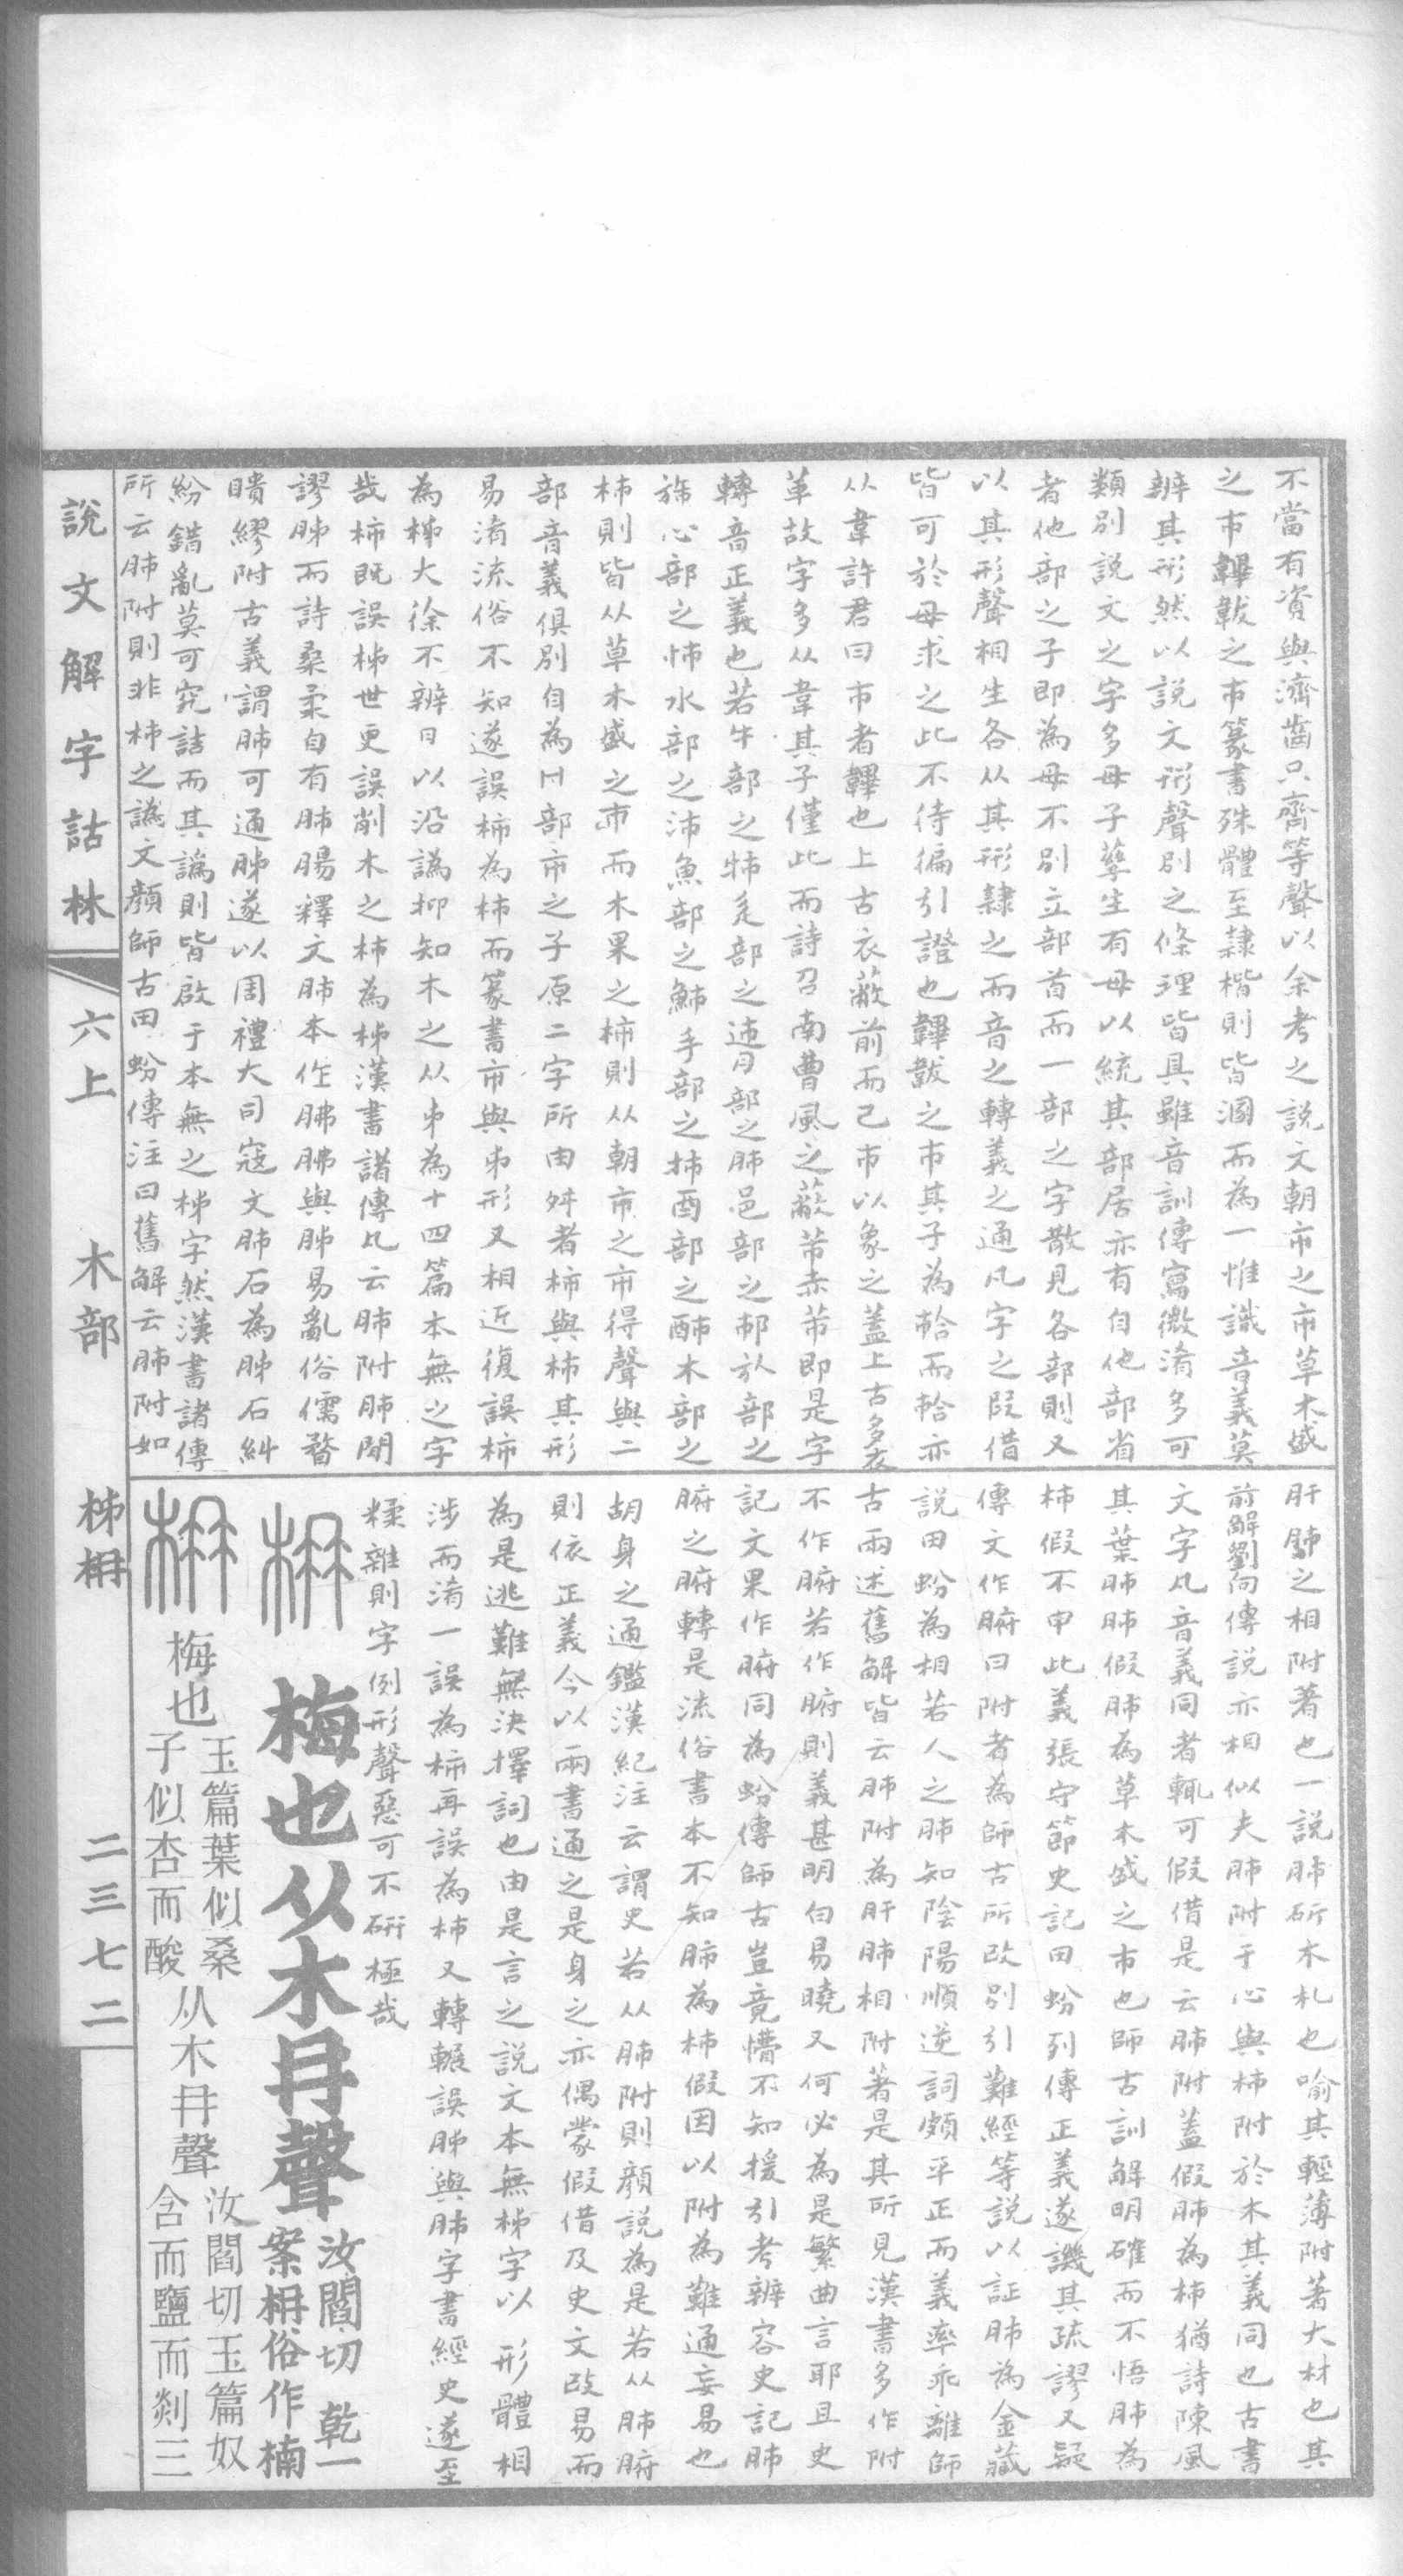 不當有資與濟齒只齊等聲以余考之說文朝市之市草木盛
之巿韠韍之巿篆書殊體至隸楷則皆溷而為一惟識音義莫
辨其形然以說文形聲別之條理皆具雖音訓傳寫微淆多可
類別說文之字多母子孳生有母以統其部居亦有自他部省
者他部之子即為母不別立部首而一部之字散見各部則又
以其形聲相生各從其形隸之而音之轉義之通凡字之叚借
皆可於母求之此不待徧引證也韠韍之巿其子為帢而帢亦
从韋許君曰巿者韠也上古衣蔽前而已巿以象之蓋上古多衣
革故字多从韋其子僅此而詩召南曹風之蔽芾赤芾即是字
轉音正義也若牛部之㸬辵部之䢌肉部之肺邑部之邿㫃部之
旆心部之怖水部之沛魚部之䰽手部之抪酉部之酺木部之
柿則皆从草木盛之巿而木果之柿則从朝市之市得聲與二
部音義俱別自為冂部市之子原二字所由舛者柿與柿其形
易淆流俗不知遂誤柿為柿而篆書巿與弟形又相近復誤柿
為梯大徐不辨日以沿譌抑知木之从弟為十四篇本無之字
哉柿既誤梯世更誤削木之柿為梯漢書諸傳凡云肺附肺閒
謬胏而詩桑柔自有肺腸釋文肺本作胇胇與胏易亂俗儒瞀
瞶繆附古義謂肺可通胏遂以周禮大司寇文肺石為胏石糾
紛錯亂莫可究詰而其譌則皆啟于本無之梯字然漢書諸傳
所云肺附則非柿之譌文顏師古田蚡傳注曰舊解云肺附如
肝肺之相附著也一說肺斫木札也喻其輕薄附著大材也其
前解劉向傳說亦相似夫肺附于心與柿附於木其義同也古書
文字凡音義同者輒可假借是云肺附蓋假肺為柿猶詩陳風
其葉肺肺假肺為草木盛之巿也師古訓解明確而不悟肺為
柿假不申此義張守節史記田蚡列傳正義遂譏其疏謬又疑
傳文作腑曰附者為師古所改別引難經等說以証肺為金藏
說田蚡為相若人之肺知陰陽順逆詞頗平正而義率乖離師
古兩述舊解皆云肺附為肝肺相附著是其所見漢書多作附
不作腑若作腑則義甚明白易曉又何必為是繁曲言耶且史
記文果作腑同為蚡傳師古豈竟懵不知援引考辨容史記肺
腑之腑轉是流俗書本不知肺為柿假因以附為難通妄易也
胡身之通鑑漢紀注云謂史若从肺附則顏說為是若从肺腑
則依正義今以兩書通之是身之亦偶蒙假借及史文改易而
為是逃難無決擇詞也由是言之說文本無梯字以形體相
涉而淆一誤為柿再誤為柿又轉輾誤胏與肺字書經史遂至
糅雜則字例形聲惡可不研極哉
梅也从木冄聲汝閻切 乾一
案枏俗作楠
梅也玉篇葉似桑
子似杏而酸从木冄聲汝閻切玉篇奴
含而鹽而剡三
說文解字詁林 六上 木部 梯枏 二三七二